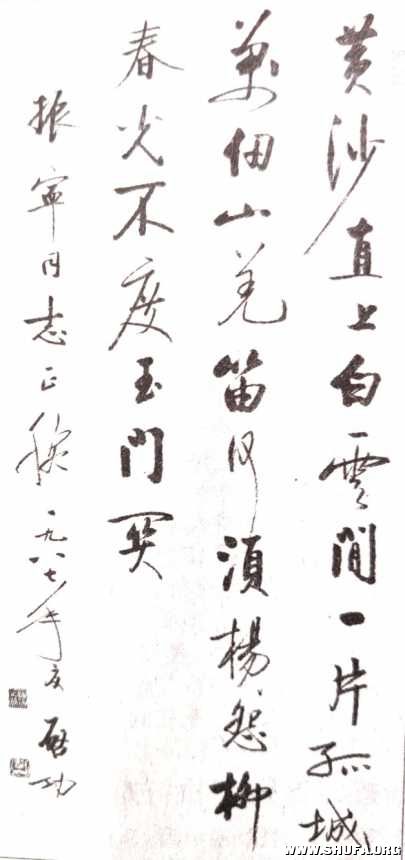 黄沙直上白雲間一片孤城
萬仞山羌笛何須楊怨柳
春光不度玉門関
振寧同志正 一九八七年夏 啓功
WWW.SHUFA.ORG